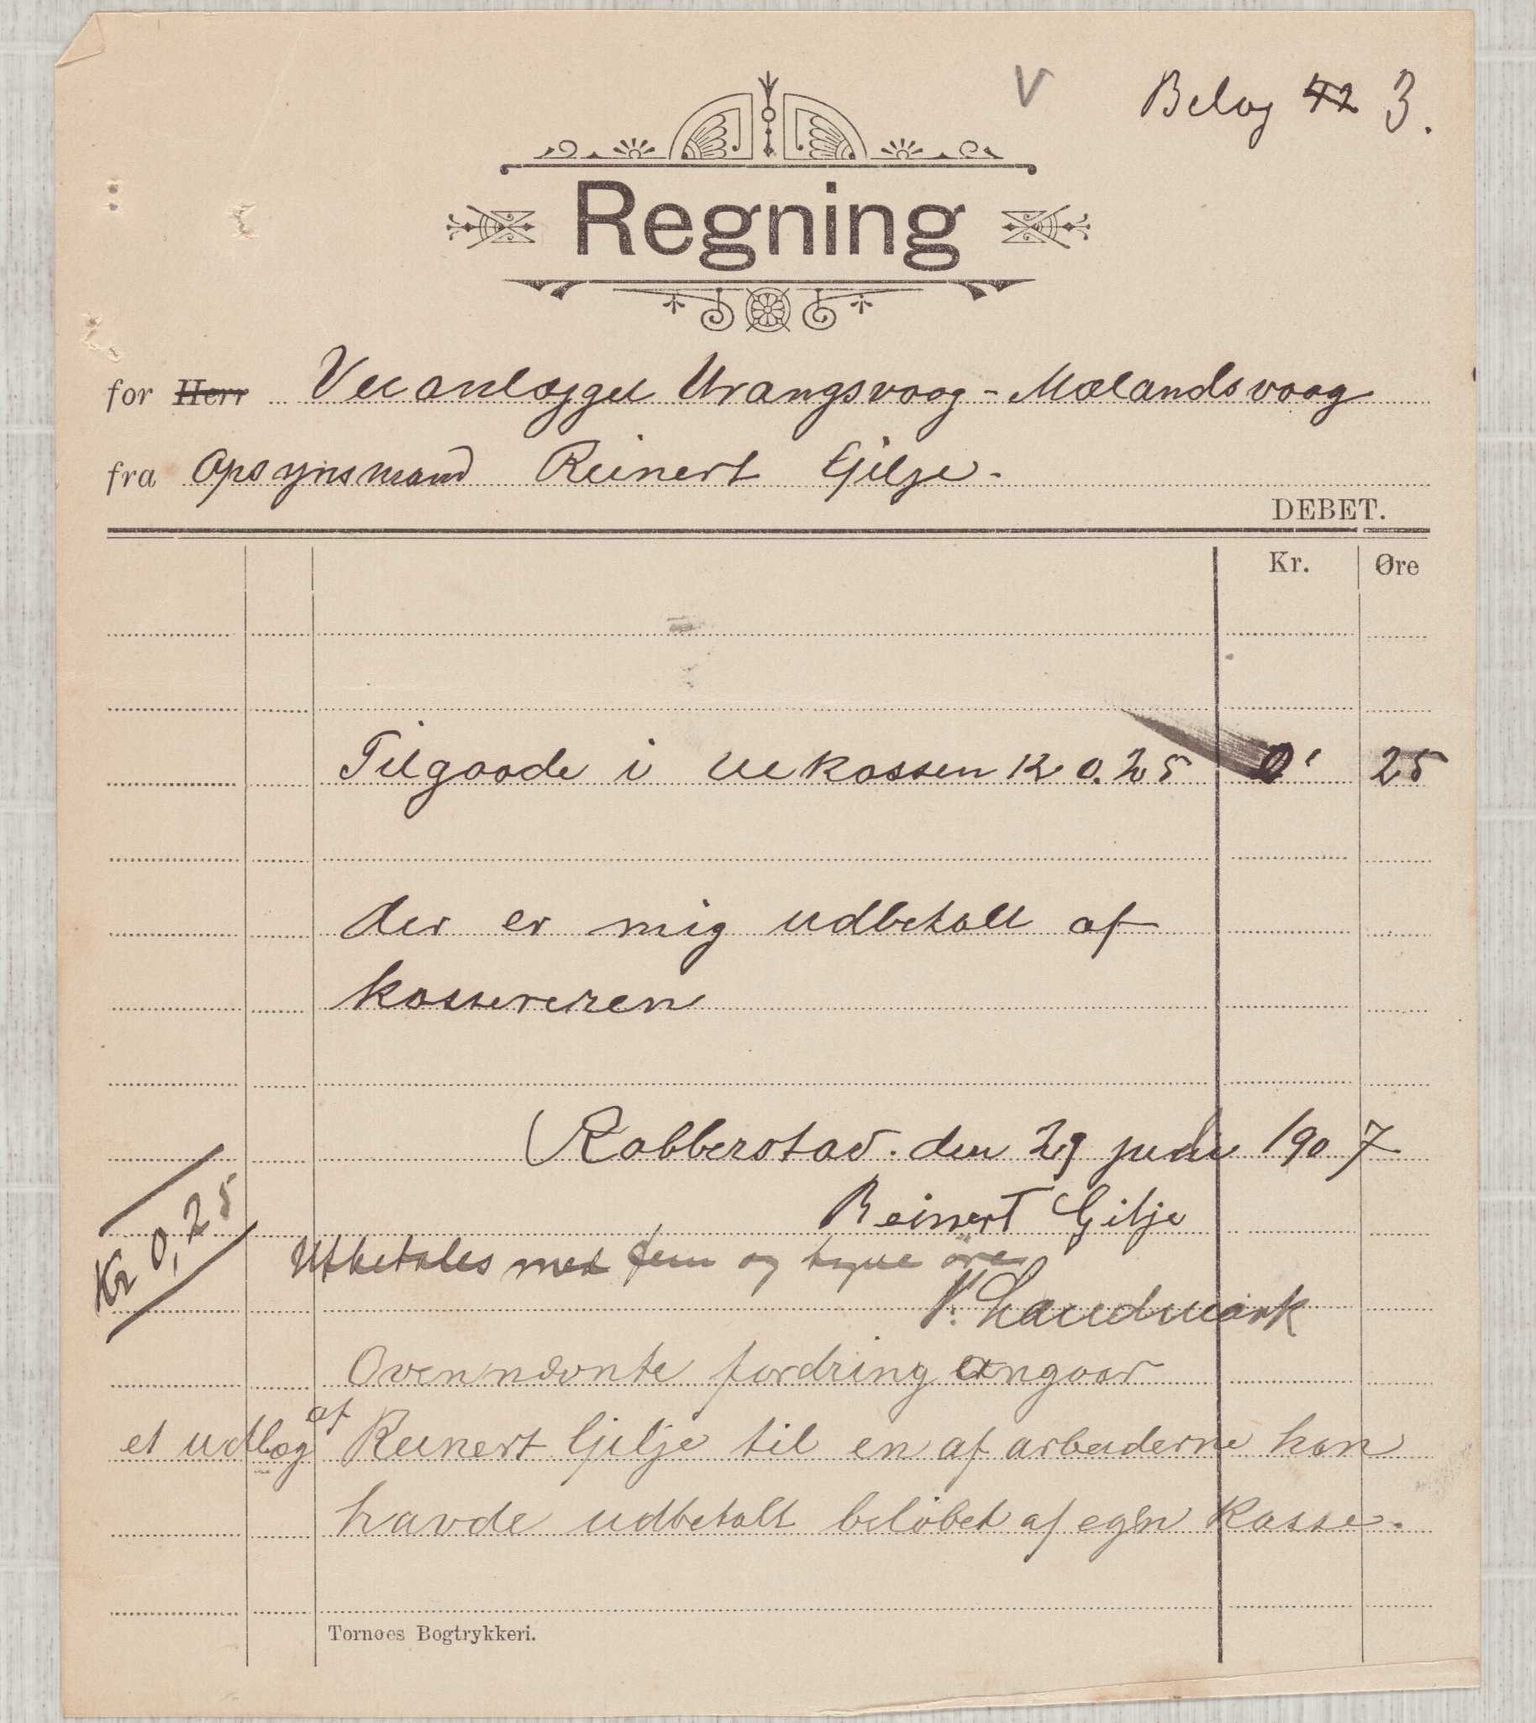 V Belag 42 3.
Regning
for Herr Veianlægget Urangsvaag - Mælandsvaag
fra Opsynsmand Reinert Gilje.
DEBET.
Kr. Øre
Tilgaade i kassen Kr 0.25 0' 25
der er mig udbetalt af
kassereren
Rabberstad. den 29 juni 1907
Reinert Gilje
Kr 0,25
Utbetales med fem og tyve øre
V. Landmark
Ovennævnte fordring angaar
et udlæg af Reinert Gilje til en af arbeiderne han
havde udbetalt beløbet af egen kasse.
Tornøes Bogtrykkeri.